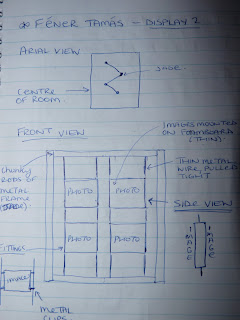 FÉNER TAMÁS - DISPLAY 2
ARIAL VIEW
CENTRE OF ROOM.
FRONT VIEW
IMAGES MOUNTED
ON FOAMBOARD
(THIN).
CHUNKY
RODS OF
METAL
FRAME
THIN METAL
WIRE, PULLED
TIGHT
PHOTO
PHOTO
SIDE VIEW
PHOTO
PHOTO
IMAGE
IMAGE
FITTINGS
IMAGE
METAL
CLIPS.